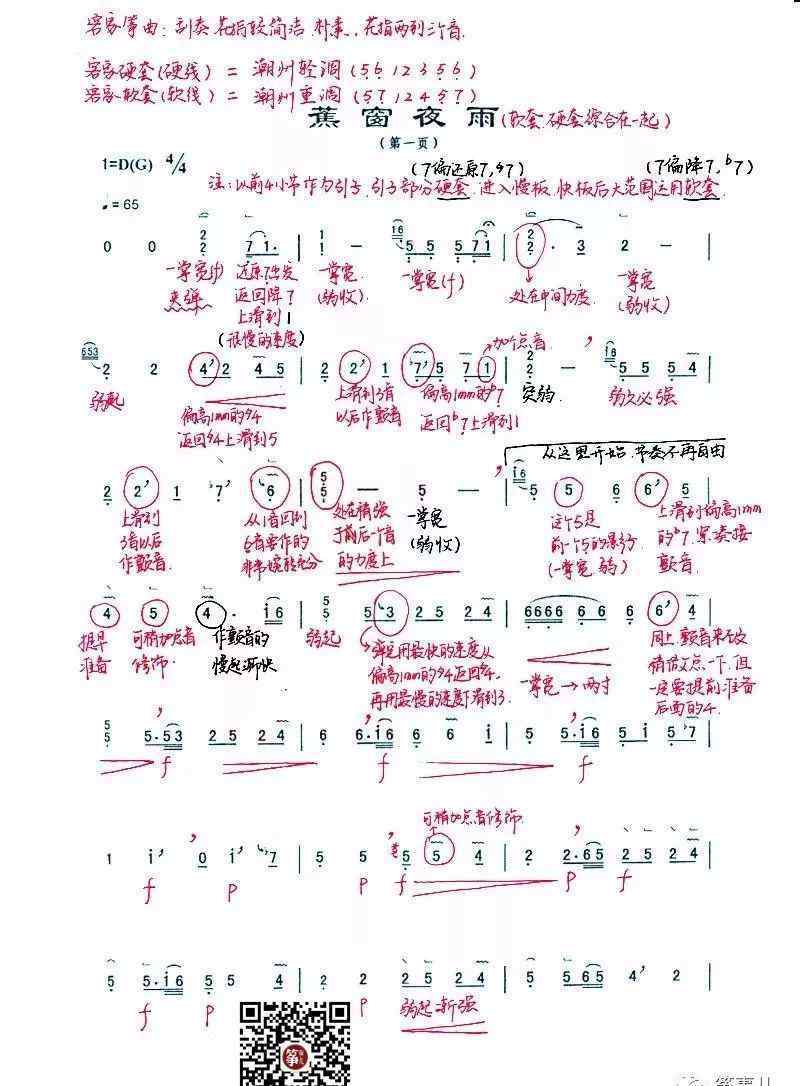 客家筝曲：刮奏、花指较简洁、朴素，花指两到三个音.
客家硬套(硬线) = 潮州轻调 (5 6 1 2 3 5 6)
客家软套(软线) = 潮州重调 (5 7 1 2 4 5 7)
蕉窗夜雨(软套、硬套综合在一起)
(第一页)
1=D(G) 4/4 (7偏还原7,♮7) (7偏降7,♭7)
注：以前4小节作为引子，引子部分硬套，进入慢板、快板后大范围运用软套.
♩=65
0 0 2 2 7 1. | 1 1 - 16 5 5 5 7 1 | 2 2 . 3 2 -
一掌宽(f) 还原7出发 一掌宽 一掌宽(f) 一掌宽
夹弹 返回降7 (弱收) 处在中间力度. (弱收)
上滑到1
(很慢的速度)
加个点音
653 2 2 4 2 4 5 | 2 2 7 5 7 1 | 2 2 - 16 5 5 5 4
弱起 上滑到3音 偏高1mm的♭7 突弱. 弱久必强
偏高1mm的♮4 以后作颤音 返回♭7上滑到1
返回♮4上滑到5
从这里开始，节奏不再自由
2 2 1 7 6 | 5 5 - 5 - | i6 5 5 6 6
上滑到 从1音回到 处在稍强 一掌宽 这个5是 上滑到偏高1mm
3音以后 6音要作的 于前后个音 (弱收) 前一个5的影子 的♭7，紧凑接
作颤音. 非常婉转充分 的力度上 (一掌宽、弱) 颤音.
4 5 4. i6 | 5 5 5 3 2 5 2 4 | 6666 6 6 6 4
提早 可稍加点音 作颤音的 弱起 弹完用最快的速度从 同上，颤音来放
准备 修饰. 慢起渐快 偏高1mm的♮4返回♮4. 一掌宽→两寸 稍微欠一下，但
再用最慢的速度下滑到3. 一定要提前准备
后面的4.
5 5.53 2 5 2 4 | 6 6.i6 6 6 i | 5 5.i6 5 i 5 7
f f f
可稍加点音修饰.
1 i 0 i 7 6 | 5 5 5 5 4 | 2 2.65 2 5 2 4
f p p f p f
5 5.i6 5 5 4 | 2 2 2 5 2 4 | 5 5 65 4 2
f p p 弱起渐强